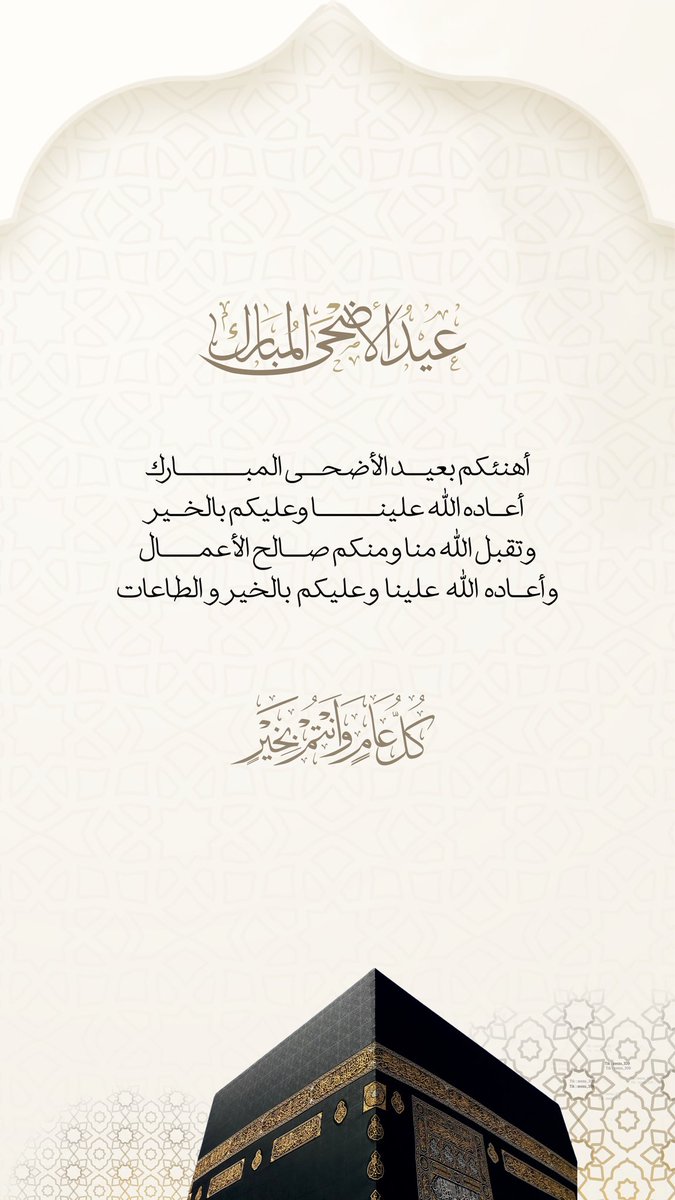 عيد الأضحى المبارك
أهنئكم بعيد الأضحى المبارك
أعاده الله علينا وعليكم بالخير
وتقبل الله منا ومنكم صالح الأعمال
وأعاده الله علينا وعليكم بالخير والطاعات
كُلُّ عَامٍ وَأَنْتُمْ بِخَيْرٍ